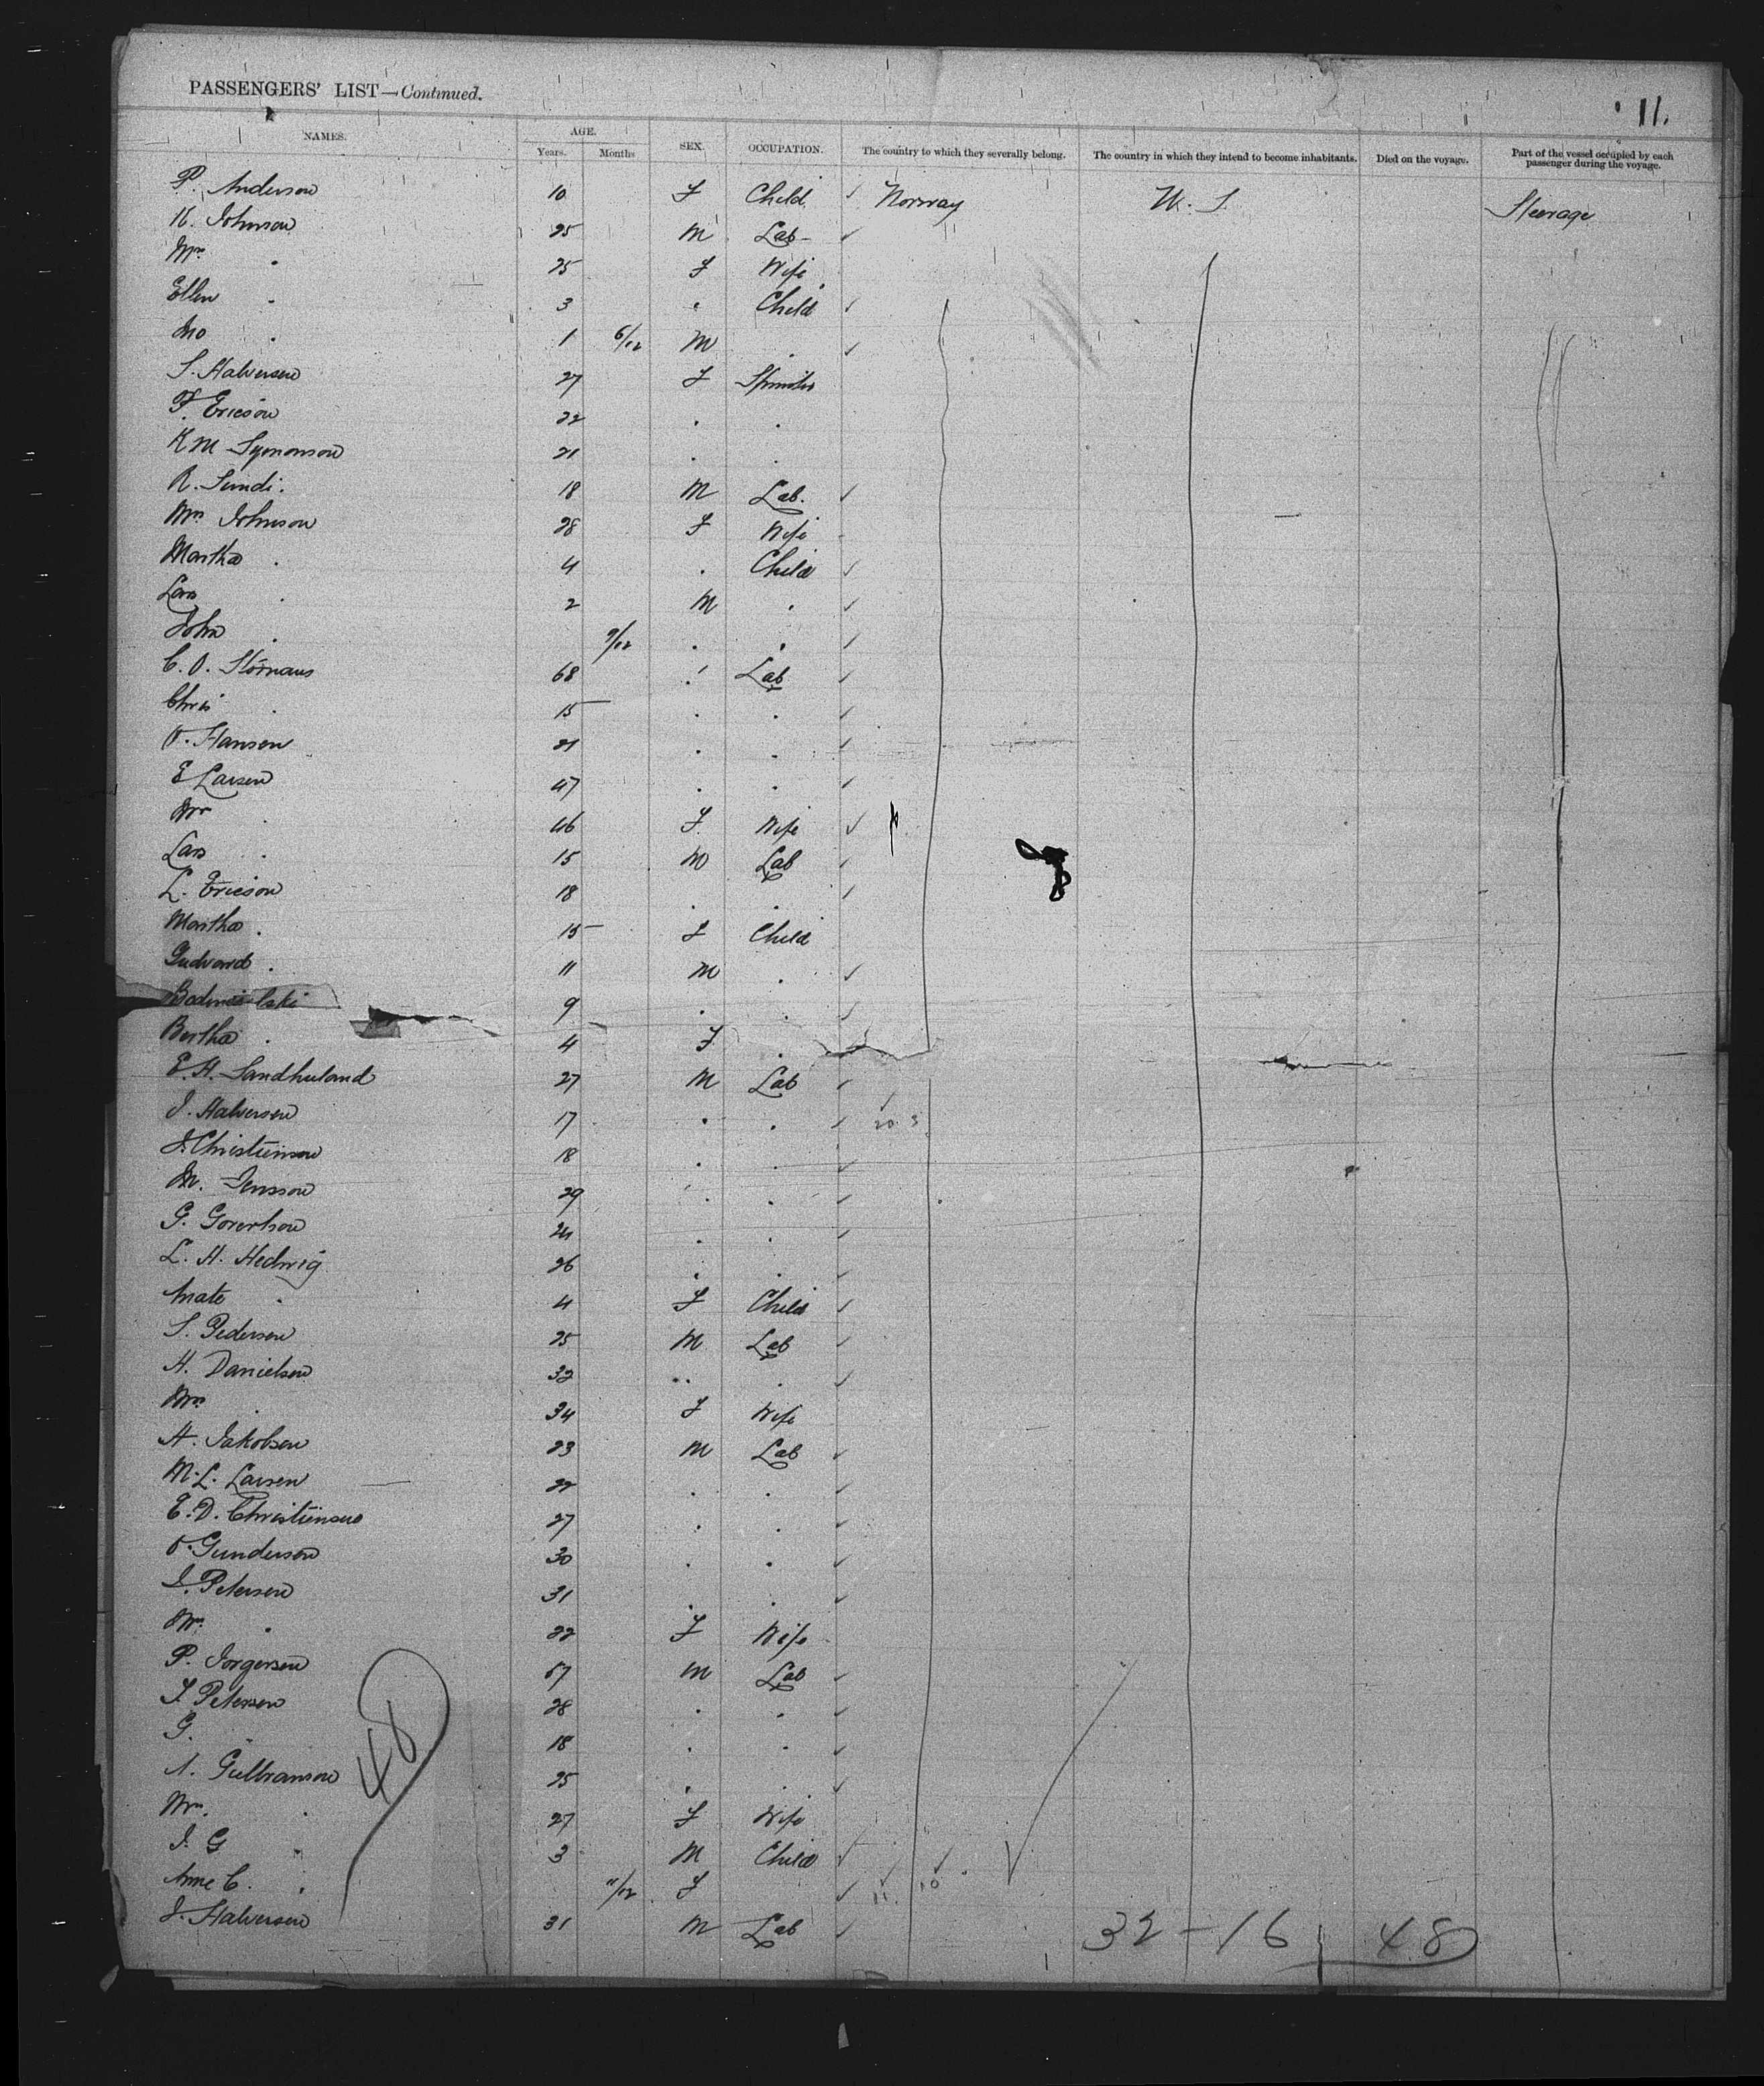 PASSENGERS' LIST—Continued.
11.
NAMES. AGE. SEX. OCCUPATION. The country to which they severally belong. The country in which they intend to become inhabitants. Died on the voyage. Part of the vessel occupied by each passenger during the voyage.
Years. Months
P. Anderson 10 F Child ✓ Norway U. S. Steerage
K. Johnson 25 M Lab ✓
Mrs " 25 F Wife
Ellen " 3 " Child ✓
1 6/12 M " ✓
S. Halversen 27 F Spinster
F. Ericson 22 " "
K M Symonson 21 " "
R. Sundi. 18 M Lab. ✓
Mrs Johnson 28 F Wife
Martha " 4 " Child ✓
Lars " 2 M " ✓
John " 9/12 " " ✓
C. O. 68 " Lab ✓
Chris " 15 " " ✓
O. Hansen 21 " " ✓
E Larsen 47 " " ✓
Mrs " 46 F. Wife ✓
Lars " 15 M Lab ✓
L. Ericson 18 " " ✓
Martha " 15 F Child
" 11 M " ✓
9 " " ✓
Bertha " 4 F " ✓
E. H. Sandhuland 27 M Lab ✓
J. Halversen 17 " " ✓ 20 3
J. Christienson 18 " " ✓
M. Jensson 29 " " ✓
G. 24 " " ✓
L. H. Hedwig 26 " " ✓
" 4 F Child ✓
S. Pedersen 25 M Lab ✓
H. Danielsen 32 " " ✓
Mrs " 34 F Wife
A. Jakobsen 23 M Lab ✓
M. L. Larsen 22 " " ✓
E. D. Christiensen 27 " " ✓
O. Gunderson 30 " " ✓
J. Petersen 31 " " ✓
Mrs " 22 F Wife
P. Jorgersen 57 M Lab ✓
J. Petersen 28 " " ✓
G. " 18 " " ✓
A. Gulbranson 25 " " ✓
Mrs. " 27 F Wife
J. G " 3 M Child ✓
Anne C. " 11/12 F ✓ 11 10
J. Halversen 31 M Lab ✓
48
32 - 16 48